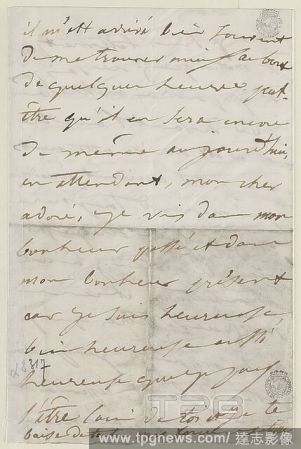 il m'est arrivé bien souvent
de me trouver mieux au bout
de quelques heures, peut-
être qu'il en sera encore
de même aujourd'hui,
en attendant, mon cher
adoré, je vis dans mon
bonheur passé et dans
mon bonheur présent
car je suis heureuse
bien heureuse aussi
heureuse que je puis
l'être loin de toi
baise
TPG
www.tpgnews.com/達志影像